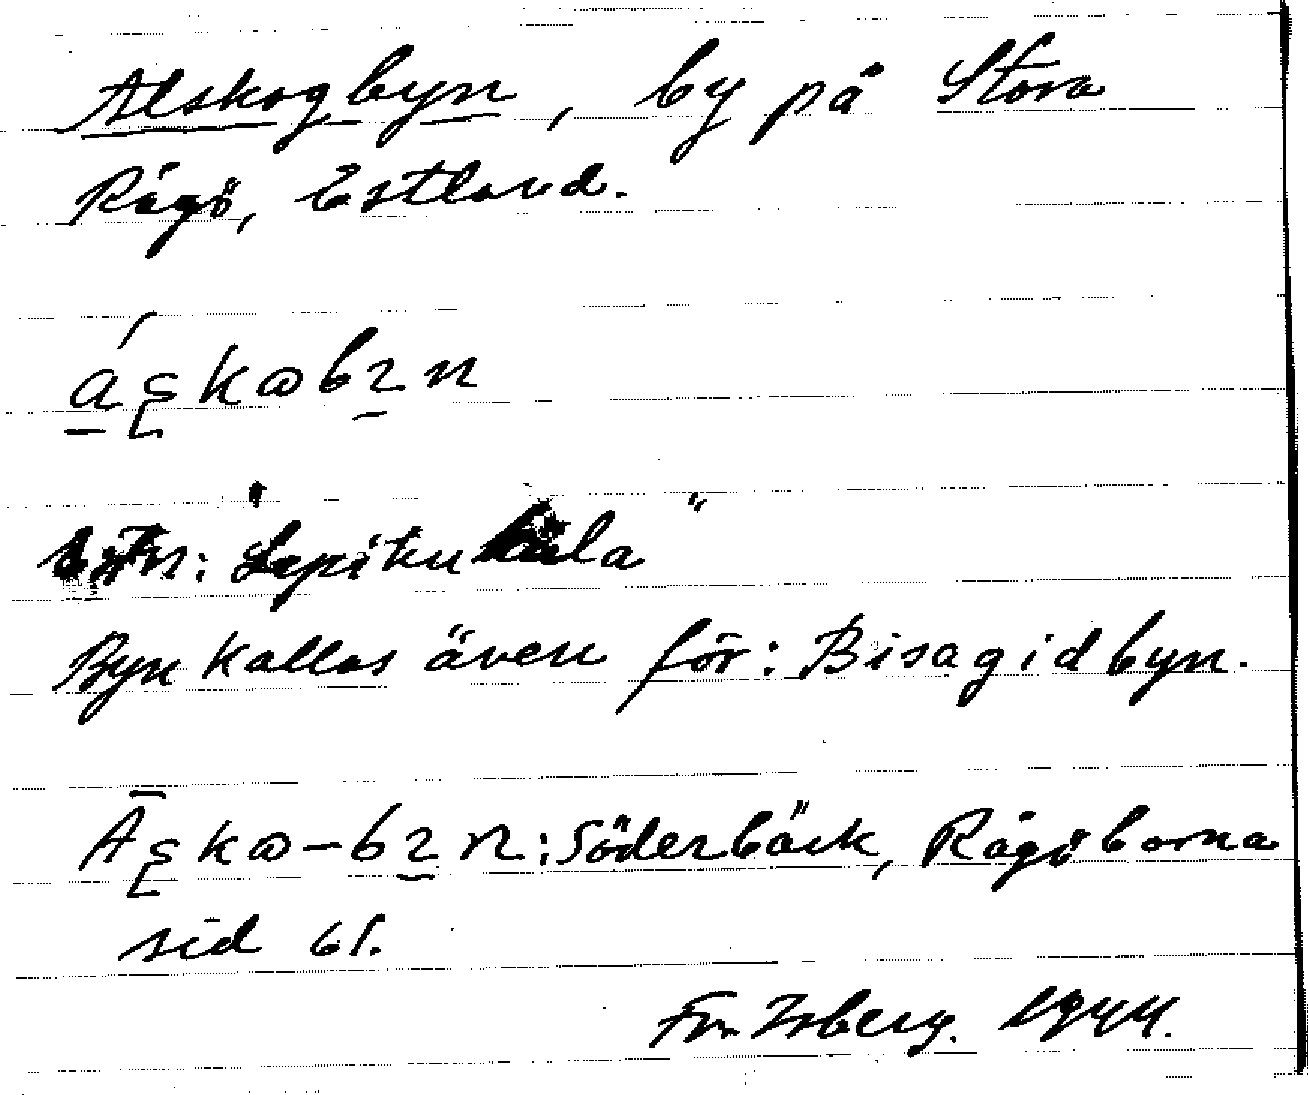 Alskogbyn, by på Stora
Rågö, Estland.
Lepiku küla
Byn kallas även för: Bisagidbyn.
Söderbäck, Rågöborna
sid 61.
Isberg. 1944.